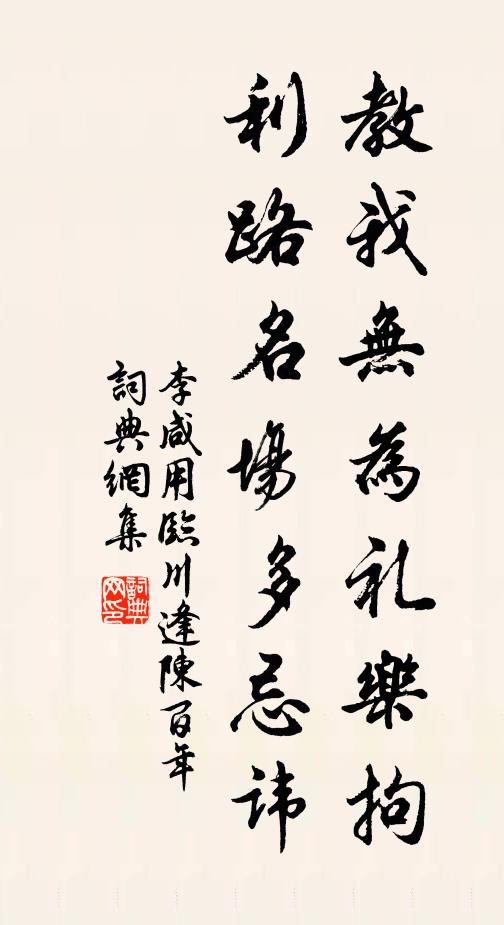 教我無為礼樂拘
利路名場多忌諱
李咸用臨川逢陳百年
詞典網集
詞典网印